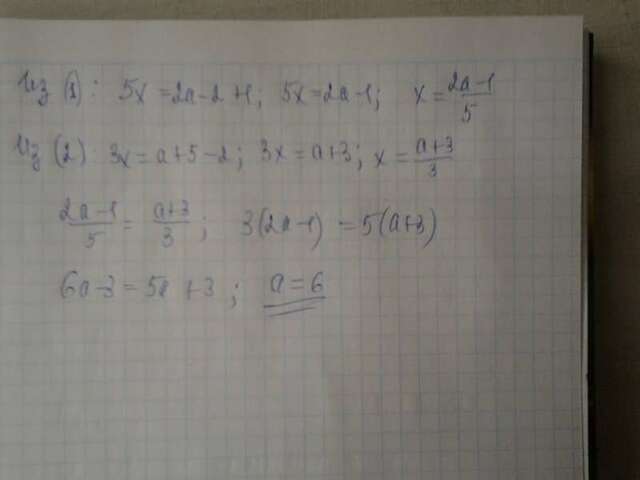 Из (1): 5x = 2a-2+1; 5x = 2a-1; x = \frac{2a-1}{5}
Из (2): 3x = a+5-2; 3x = a+3; x = \frac{a+3}{3}
\frac{2a-1}{5} = \frac{a+3}{3}; 3(2a-1) = 5(a+3)
6a-3 = 5a+3; a = 6